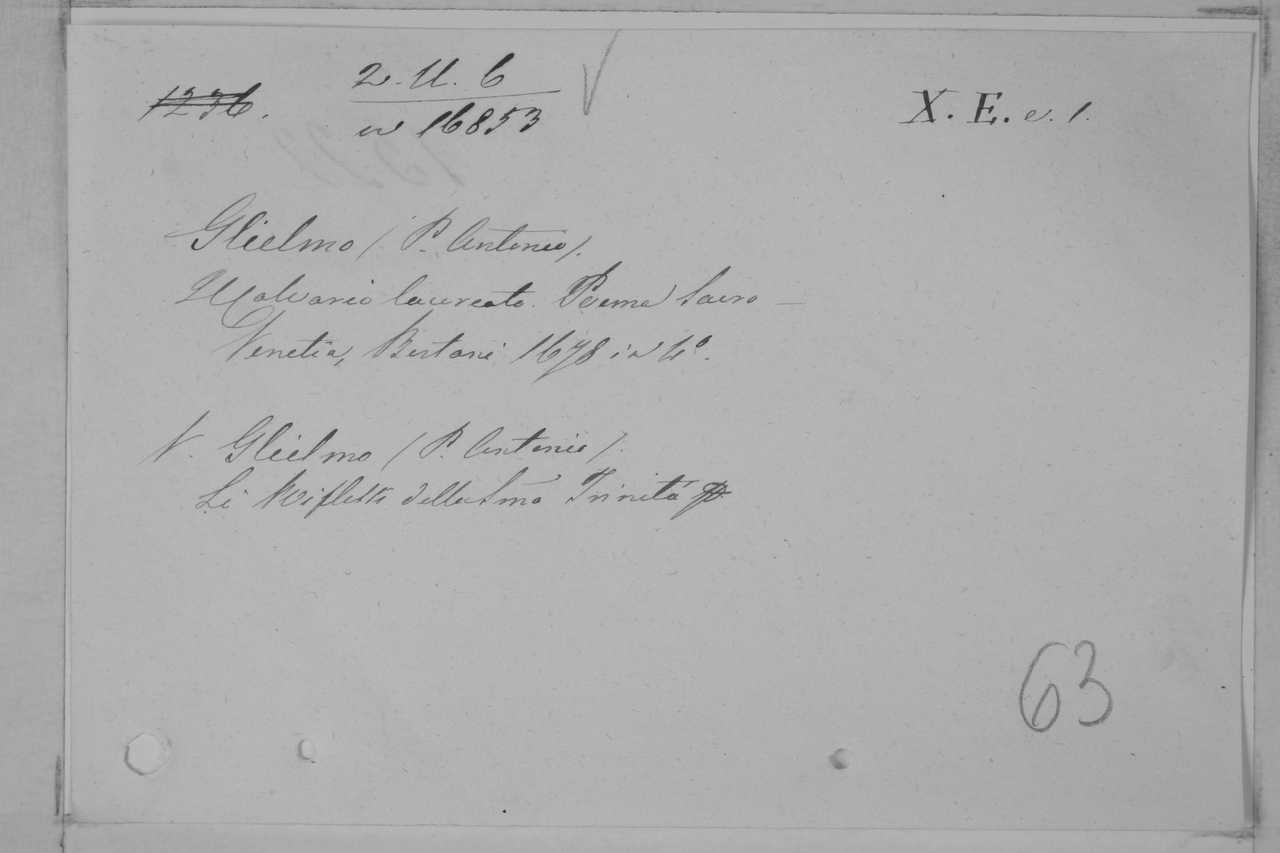 1236. 2. U. 6 X. E. e. 1.
in 16853
Glielmo (P. Antonio).
Il Calvario laureato. Poema Sacro —
Venetia, Bertani 1678 in 4º.
V. Glielmo (P. Antonio).
Li Riflessi della Sma Trinità
63